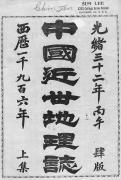 SUN LEE
光緒三十二年 丙午 肆版
中國近世地理誌
西歷一千九百六年 上集